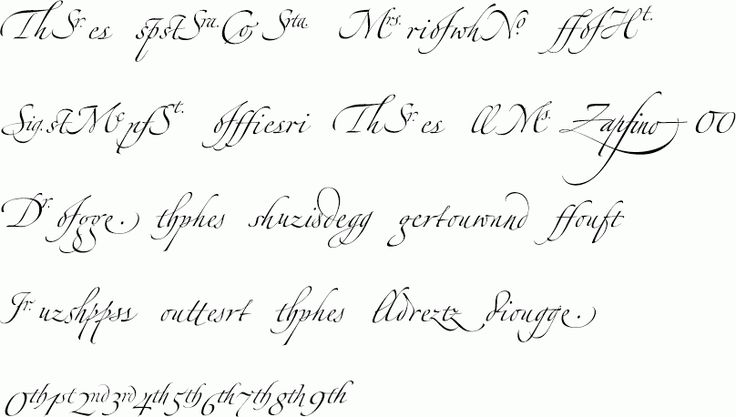 ThSr. es spstSra. Co Srta. Mrs. riofwhNo ffofHt.
Sig. stMcpfSt. offfiesri ThSr. es llMs. Zapfino oo
Dr. ofgge. thphes shuzisdegg gertouwnnd ffouft
Jr. uzshppss outtesrt thphes lldreztz diougge.
0th1st2nd3rd4th5th6th7th8th9th